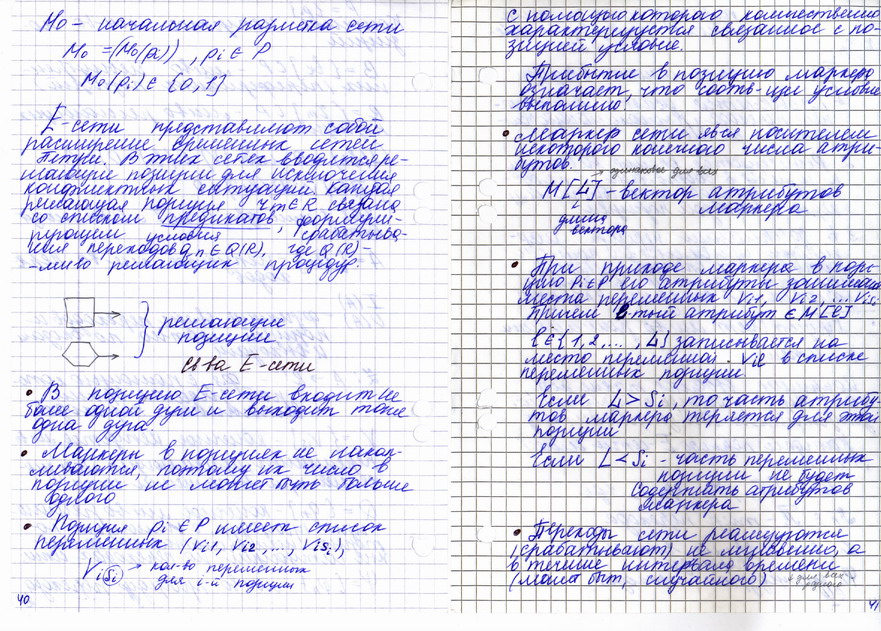 M₀ – начальная разметка сети
M₀ = (M₀(pᵢ)), pᵢ ∈ P
M₀(pᵢ) ∈ {0,1}
E-сети представляют собой
расширение временных сетей
Петри. В этих сетях вводятся ре-
шающие позиции для исключения
конфликтных ситуаций. Каждая
решающая позиция rₘ ∈ R связана
со списком предикатов, формули-
рующим условия срабатыва-
ния переходов qₙ ∈ Q(R), где Q(R) –
– мн-во решающих процедур.
решающие
позиции
Св-ва E-сети
• В позицию E-сети входит не
более одной дуги и выходит тоже
одна дуга
• Маркеры в позициях не накап-
ливаются, поэтому их число в
позиции не может быть больше
одного
• Позиция pᵢ ∈ P имеет список
переменных (Vi1, Vi2, ..., Visᵢ),
Visᵢ → кол-во переменных
для i-й позиции
40
с помощью которого количественно
характеризуется связанное с по-
зицией условие.
Прибытие в позицию маркера
означает, что соотв-щие условие
выполнено
• Маркер сети явл-ся носителем
некоторого конечного числа атри-
бутов.
→ одинаковое для всех
M[L] – вектор атрибутов
маркера
длина
вектора
• При приходе маркера в пози-
цию pᵢ ∈ P его атрибуты занимают
места переменных Vi1, Vi2, ... Visᵢ
Причем l-тый атрибут ∈ M[l]
l ∈ {1,2,..., L} записывается на
место переменной Vil в списке
переменных позиции
Если L > Sᵢ, то часть атрибу-
тов маркера теряется для этой
позиции
Если L < Sᵢ – часть переменных
позиции не будет
содержать атрибутов
маркера
• Переходы сети реализуются
(срабатывают) не мгновенно, а
в течение интервала времени
(может быт, случайного)
для всех
41